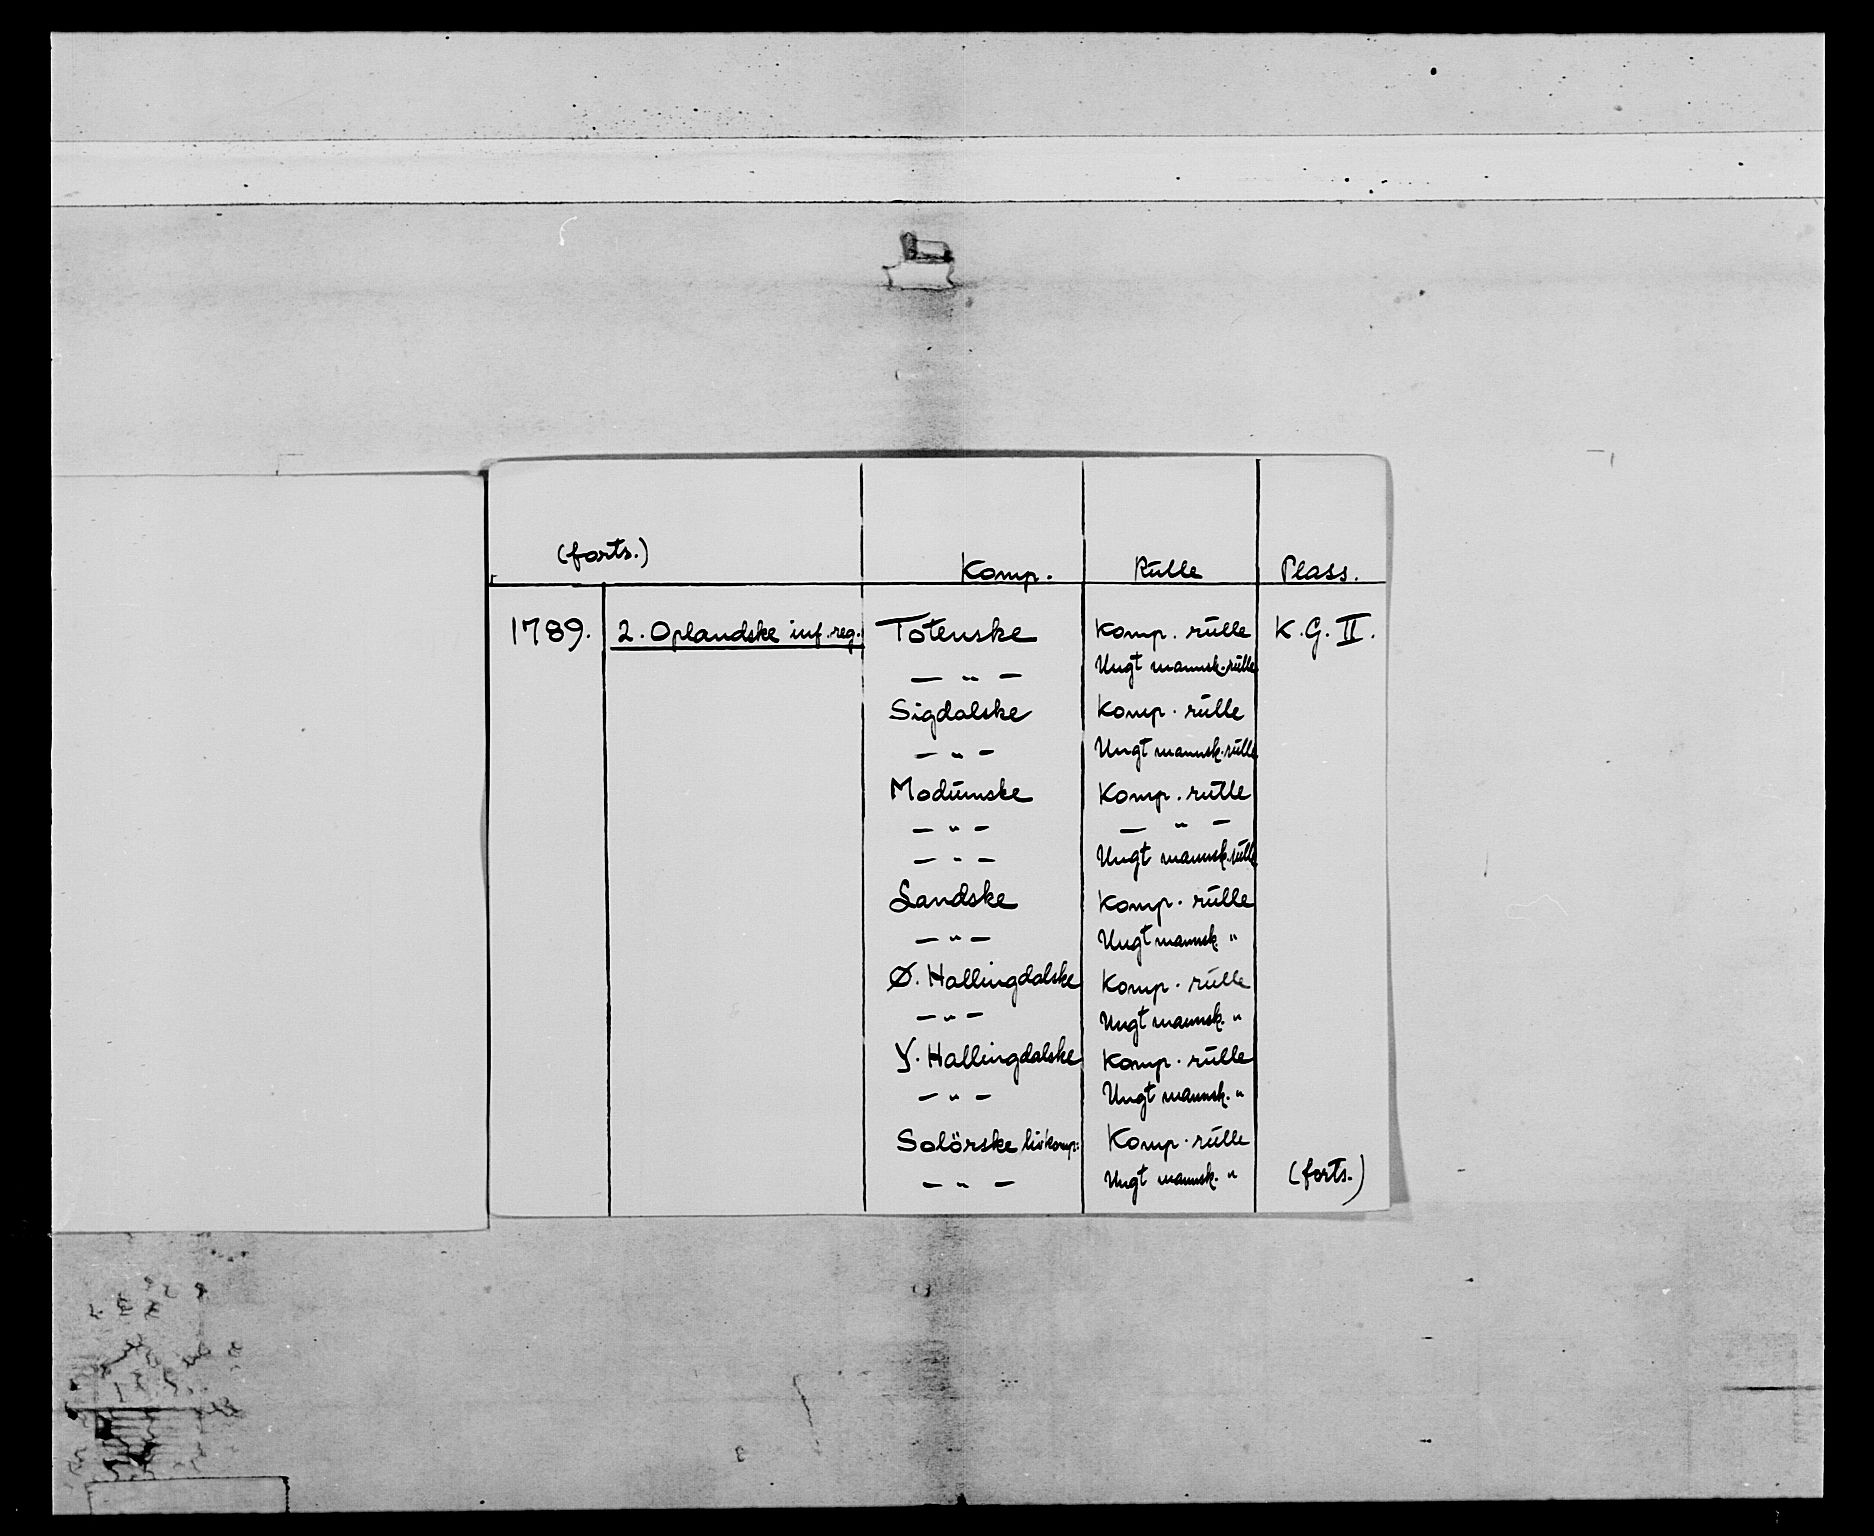 (forts.) Komp. Rulle Plass.
1789. 2. Oplandske inf. reg. Totenske Komp. rulle K.G. II.
— " — Ungt mannsk. rulle
Sigdalske Komp. rulle
— " — Ungt mannsk. rulle
Modumske Komp. rulle
— " — — " —
— " — Ungt mannsk. rulle
Landske Komp. rulle
— " — Ungt mannsk. "
Ø. Hallingdalske Komp. rulle
— " — Ungt mannsk. "
Y. Hallingdalske Komp. rulle
— " — Ungt mannsk. "
Solörske livkomp: Komp. rulle
— " — Ungt mannsk. " (forts.)